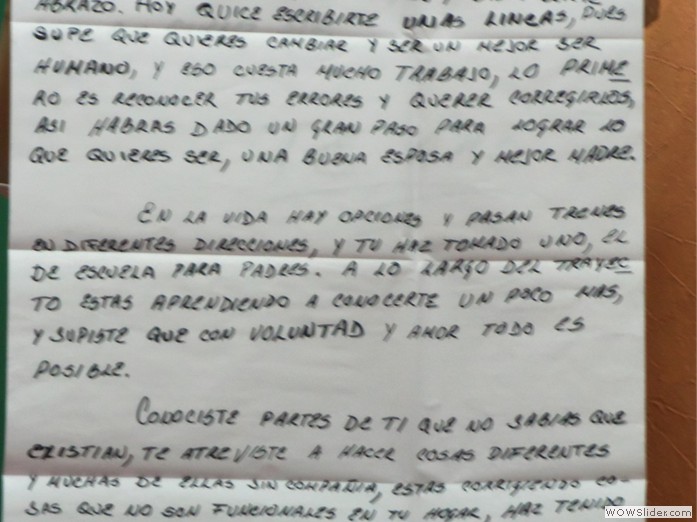 ABRAZO. HOY QUICE ESCRIBIRTE UNAS LINEAS, PUES
SUPE QUE QUIERES CAMBIAR Y SER UN MEJOR SER
HUMANO, Y ESO CUESTA MUCHO TRABAJO, LO PRIME
RO ES RECONOCER TUS ERRORES Y QUERER CORREGIRLOS,
ASI HABRAS DADO UN GRAN PASO PARA LOGRAR LO
QUE QUIERES SER, UNA BUENA ESPOSA Y MEJOR MADRE.
EN LA VIDA HAY OPCIONES Y PASAN TRENES
EN DIFERENTES DIRECCIONES, Y TU HAZ TOMADO UNO, EL
DE ESCUELA PARA PADRES. A LO LARGO DEL TRAYEC
TO ESTAS APRENDIENDO A CONOCERTE UN POCO MAS,
Y SUPISTE QUE CON VOLUNTAD Y AMOR TODO ES
POSIBLE.
CONOCISTE PARTES DE TI QUE NO SABIAS QUE
EXISTIAN, TE ATREVISTE A HACER COSAS DIFERENTES
Y MUCHAS DE ELLAS SIN COMPAÑIA, ESTAS CORRIGIENDO CO-
SAS QUE NO SON FUNCIONALES EN TU HOGAR, HAZ TENIDO
WOWSlider.com